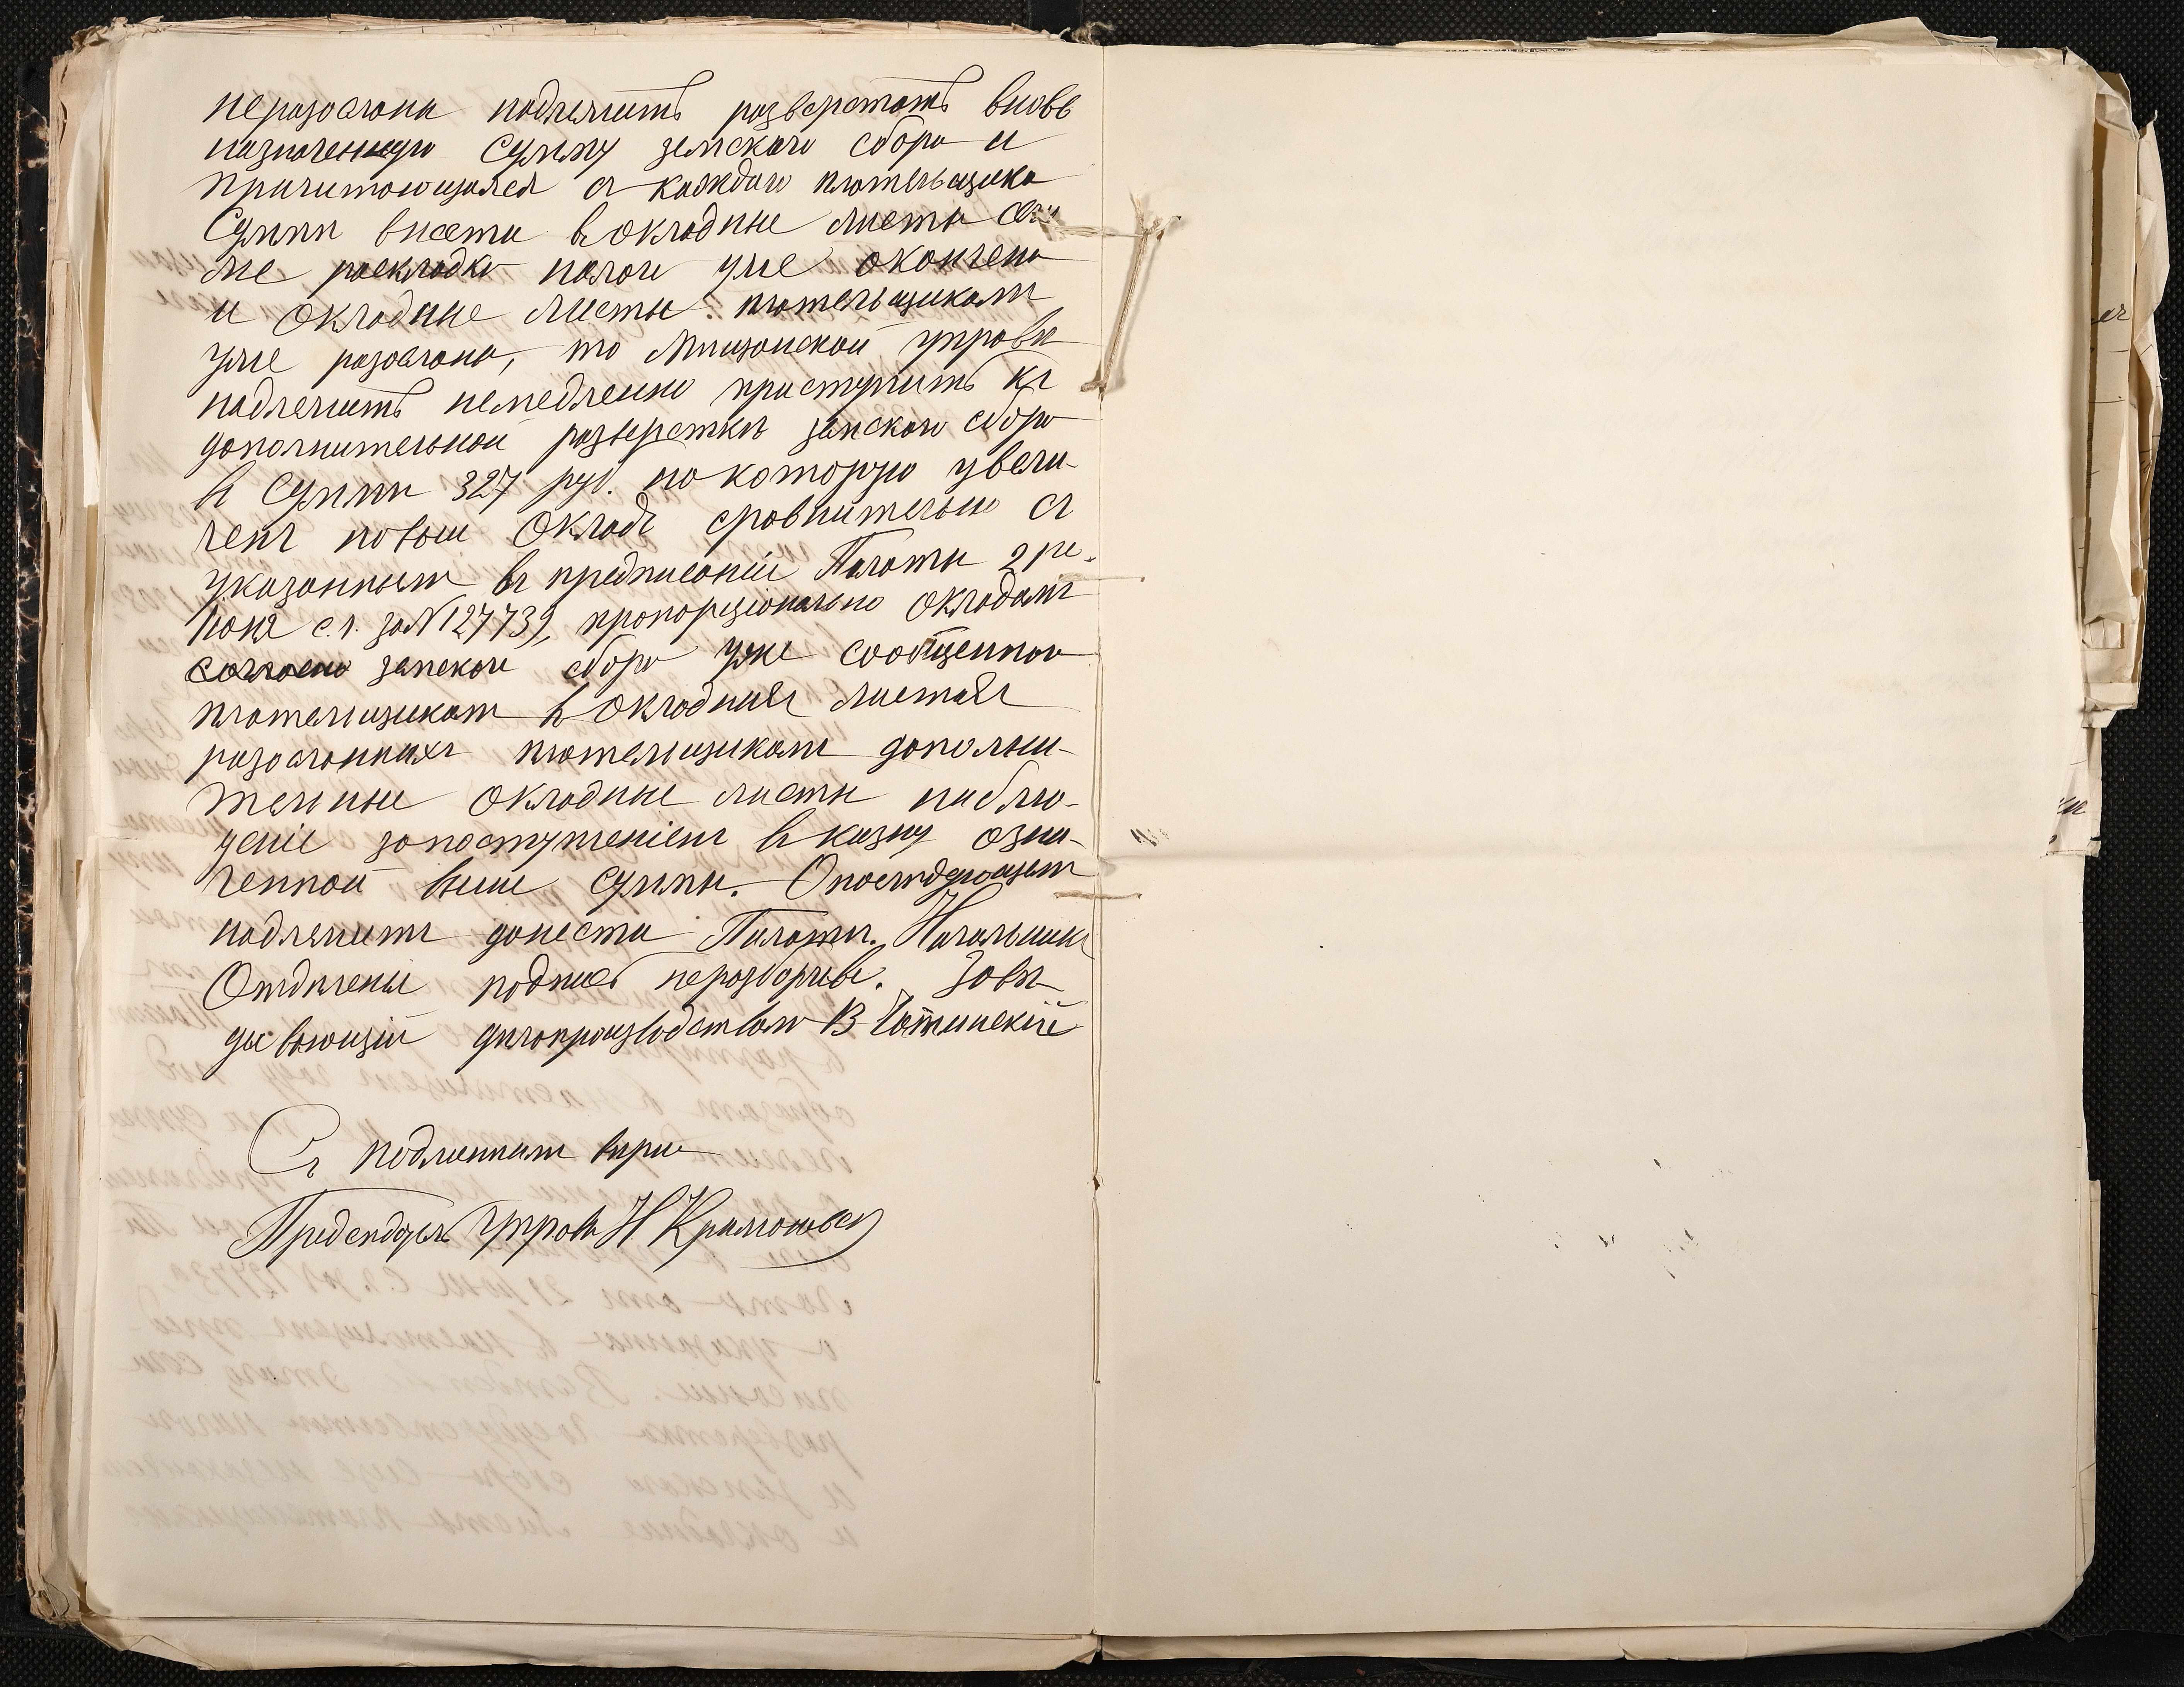 неразосланы надлежитъ разверстать вновь
назначенную сумму земскаго сбора и
причитающуюся съ каждаго плательщика
сумму внести въ окладные листы если
же раскладка налога уже окончена
и окладные листы плательщикамъ
уже разосланы, то Мѣщанской управѣ
надлежитъ немедленно приступить къ
дополнительной разверсткѣ земскаго сбора
въ суммѣ 327 руб. на которую увели-
ченъ новый окладъ сравнительно съ
указаннымъ въ предписаніи Палаты 21 Iю-
ня с.г. за № 127739, пропорціонально окладамъ
согласно земскаго сбора уже сообщеннаго
плательщикамъ въ окладныхъ листахъ
разосланныхъ плательщикамъ дополни-
тельные окладные листы наблю-
деніе за поступленіемъ въ казну озна-
ченной выше суммы. О послѣдующемъ
надлежитъ донести Палатѣ. Начальникъ
Отдѣленія подпись неразборчива. Завѣ-
дывающій дѣлопроизводствомъ В
Съ подлиннымъ вѣрно
Предсѣдатель Управы Н